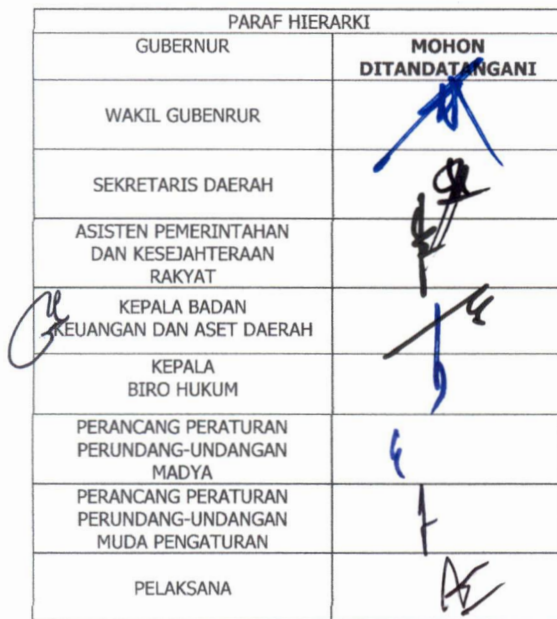 PARAF HIERARKI
GUBERNUR
MOHON
DITANDATANGANI
WAKIL GUBENRUR
SEKRETARIS DAERAH
ASISTEN PEMERINTAHAN
DAN KESEJAHTERAAN
RAKYAT
KEPALA BADAN
KEUANGAN DAN ASET DAERAH
KEPALA
BIRO HUKUM
PERANCANG PERATURAN
PERUNDANG-UNDANGAN
MADYA
PERANCANG PERATURAN
PERUNDANG-UNDANGAN
MUDA PENGATURAN
PELAKSANA